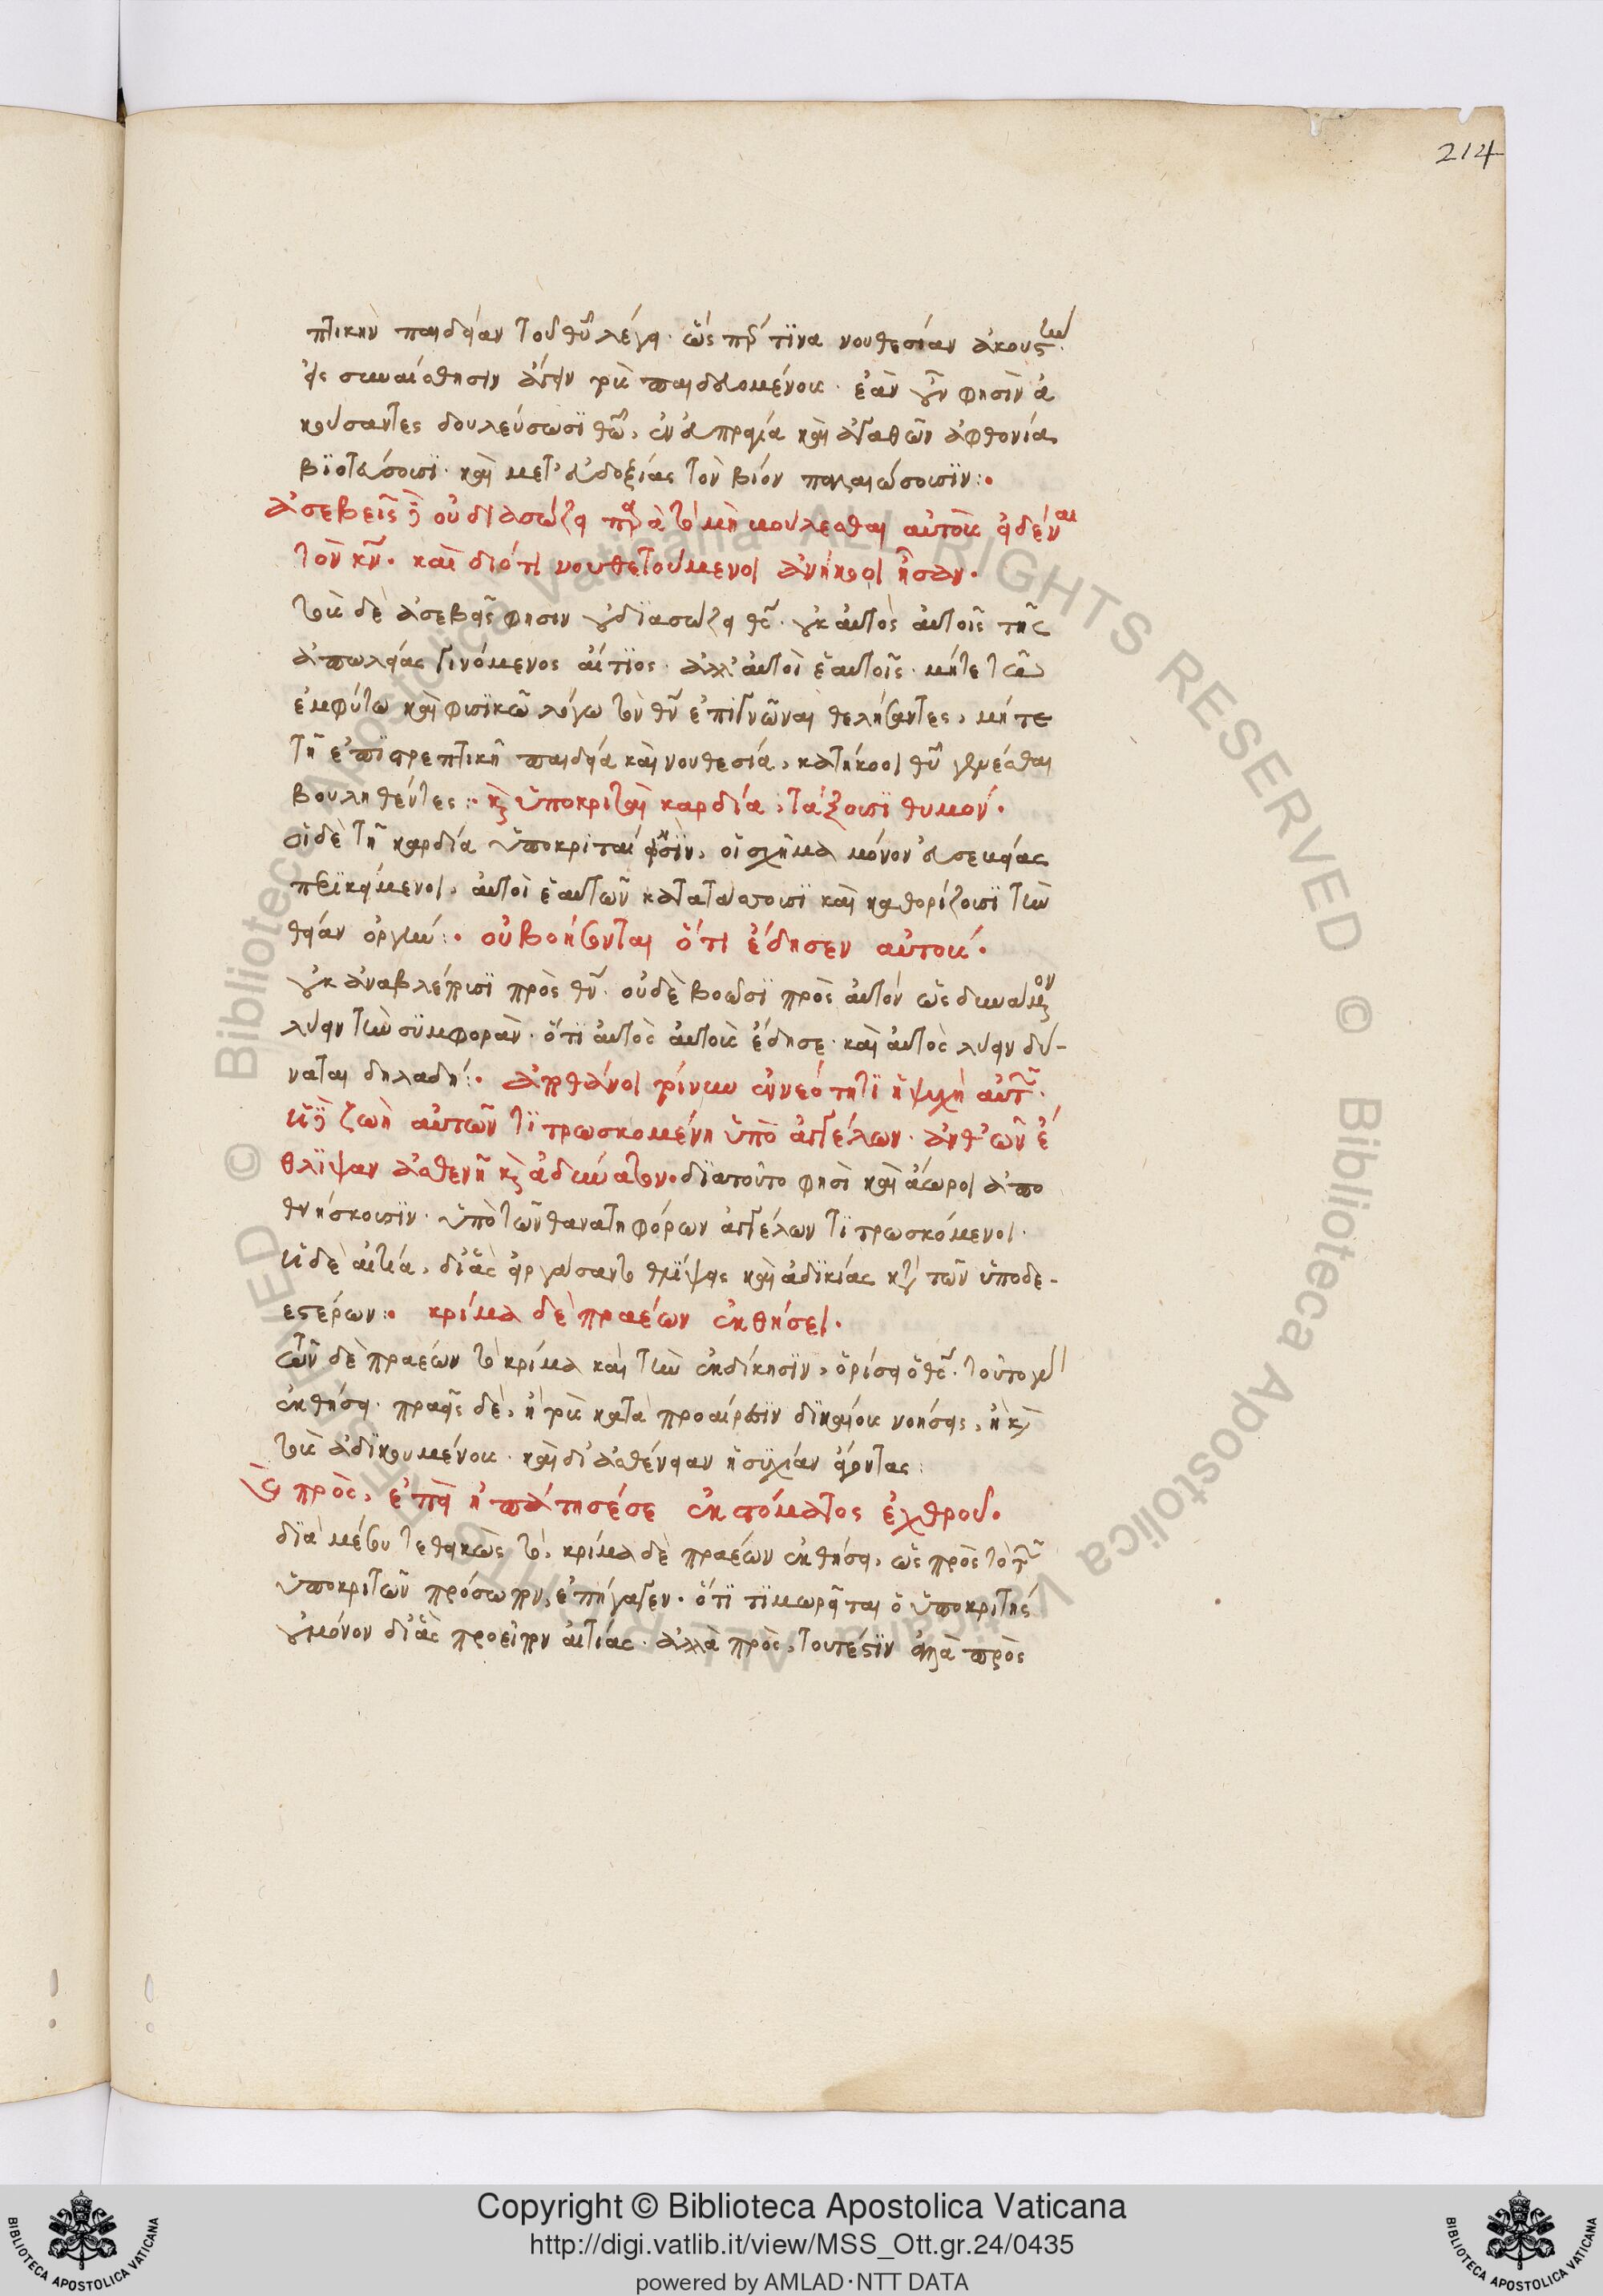 214
πτικὴν παιδείαν τοῦ θῦ λέγει· ὡς πρς τινα νουθεσίαν ἀκουστὴν
εἰς συναίσθησιν ἄγειν τοὺς παιδευομένους· ἐὰν γοῦν φησὶν ἀ
κούσαντες δουλεύσωσϊ θῶ, ἐν εὐπραγία καὶ ἀγαθῶν ἀφθονία
βϊοτεύσουσϊ· καὶ μετ' εὐδοξίας τὸν βίον παλαιώσουσϊν:·
ἀσεβεῖς δὲ οὐ διασώζει παρὰ τὸ μὴ βούλεσθαι αὐτοὺς εἰδέναι
τὸν κν· καὶ διότι νουθετούμενοι ἀνήκοοι ἦσαν·
τοὺς δὲ ἀσεβεῖς φησιν οὐ δϊασώζει θς· οὐκ αὐτὸς αὐτοῖς τῆς
ἀπωλείας γινόμενος αἴτϊος· ἀλλ' αὐτοὶ ἑαυτοῖς· μήτε τῶ
ἐμφύτω καὶ φυσϊκῶ λόγω τὸν θν ἐπιγνῶναι θελήσαντες, μήτε
τῆ ἐπϊστρεπτικῆ παιδεία καὶ νουθεσία, κατήκοοι θῦ γενέσθαι
βουληθέντες:· κ ὑποκριταὶ καρδία, τάξουσϊ θυμόν·
οἱ δὲ τῆ καρδία ὑποκριταί φησϊν, οἱ σχῆμα μόνον εὐσεβείας
περϊκείμενοι, αὐτοὶ ἑαυτῶν κατατάττουσϊ καὶ καθορίζουσϊ τὴν
θείαν ὀργήν:· οὐ βοήσονται ὅτι ἔδησεν αὐτούς·
οὐκ ἀναβλέπουσϊ πρὸς θν· οὐδὲ βοῶσϊ πρὸς αὐτόν ὡς δυνάμενον
λύειν τὴν σϋμφοράν· ὅτϊ αὐτὸς αὐτοὺς ἔδησε· καὶ αὐτὸς λύειν δύ-
ναται δηλαδή:· ἀποθάνοι τοίνυν ἐν νεότητϊ ἡ ψυχὴ αὐτῶν·
ἡ δὲ ζωὴ αὐτῶν τϊτρωσκομένη ὑπὸ ἀγγέλων· ἀνθ' ὧν ἔ
θλϊψαν ἀσθενῆ κ ἀδύνατον· δϊατοῦτο φησὶ καὶ ἄωροι ἀπο
θνήσκουσϊν· ὑπὸ τῶν θανατηφόρων ἀγγέλων τϊτρωσκόμενοι·
ἡ δὲ αἰτία, δι' ἃς εἰργάσαντο θλϊψεις καὶ ἀδϊκίας κατὰ τῶν ὑποδε-
εστέρων:· κρίμα δὲ πραέων ἐκθήσει·
τῶν δὲ πραέων τὸ κρίμα καὶ τὴν ἐκδίκησϊν, ὁρίσει ὁ θς· τοῦτο γὰρ
ἐκθήσει· πραεῖς δὲ, ἢ τοὺς κατὰ προαίρεσϊν δϊκαίους νοήσεις, ἢ καὶ
τοὺς ἀδϊκουμένους· καὶ δι' ἀσθένειαν ἡσϋχίαν ἄγοντας:
Καὶ πρὸς, ἐπεὶ ἠπάτησέ σε ἐκ στόματος ἐχθροῦ·
δϊὰ μέσου τεθεικὼς τὸ, κρίμα δὲ πραέων ἐκθήσει, ὡς πρὸς τὸ τῶν
ὑποκριτῶν πρόσωπον, ἐπήγαγεν· ὅτϊ τϊμωρεῖται ὁ ὑποκριτὴς
οὐ μόνον δι' ἃς προεῖπον αἰτίας· ἀλλὰ πρὸς, τουτέστϊν ἀλλὰ πρὸς
Copyright © Biblioteca Apostolica Vaticana
http://digi.vatlib.it/view/MSS_Ott.gr.24/0435
powered by AMLAD·NTT DATA